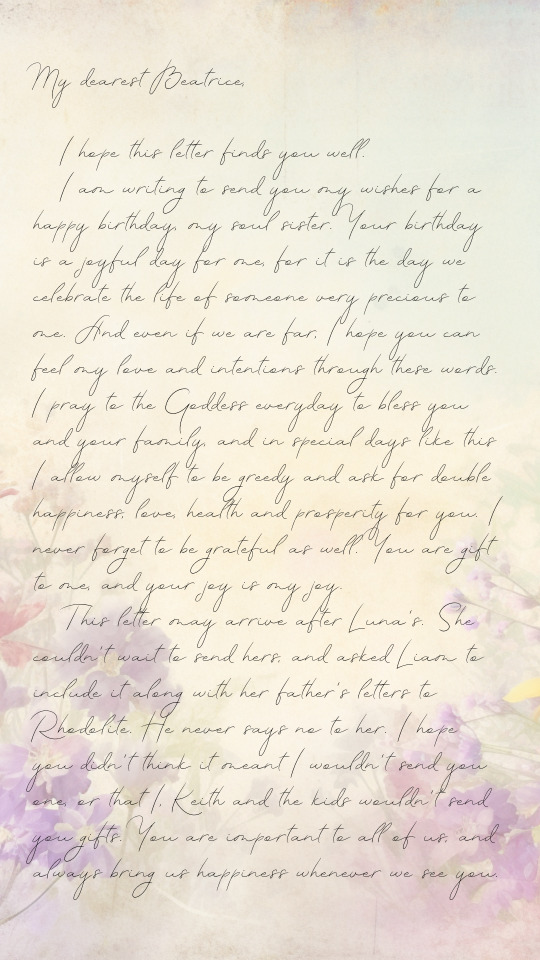 My dearest Beatrice,
I hope this letter finds you well.
I am writing to send you my wishes for a
happy birthday, my soul sister. Your birthday
is a joyful day for me, for it is the day we
celebrate the life of someone very precious to
me. And even if we are far, I hope you can
feel my love and intentions through these words.
I pray to the Goddess everyday to bless you
and your family, and in special days like this
I allow myself to be greedy and ask for double
happiness, love, health and prosperity for you. I
never forget to be grateful as well. You are gift
to me, and your joy is my joy.
This letter may arrive after Luna's. She
couldn't wait to send hers, and asked Liam to
include it along with her father's letters to
Rhodolite. He never says no to her. I hope
you didn't think it meant I wouldn't send you
one, or that I, Keith and the kids wouldn't send
you gifts. You are important to all of us, and
always bring us happiness whenever we see you.